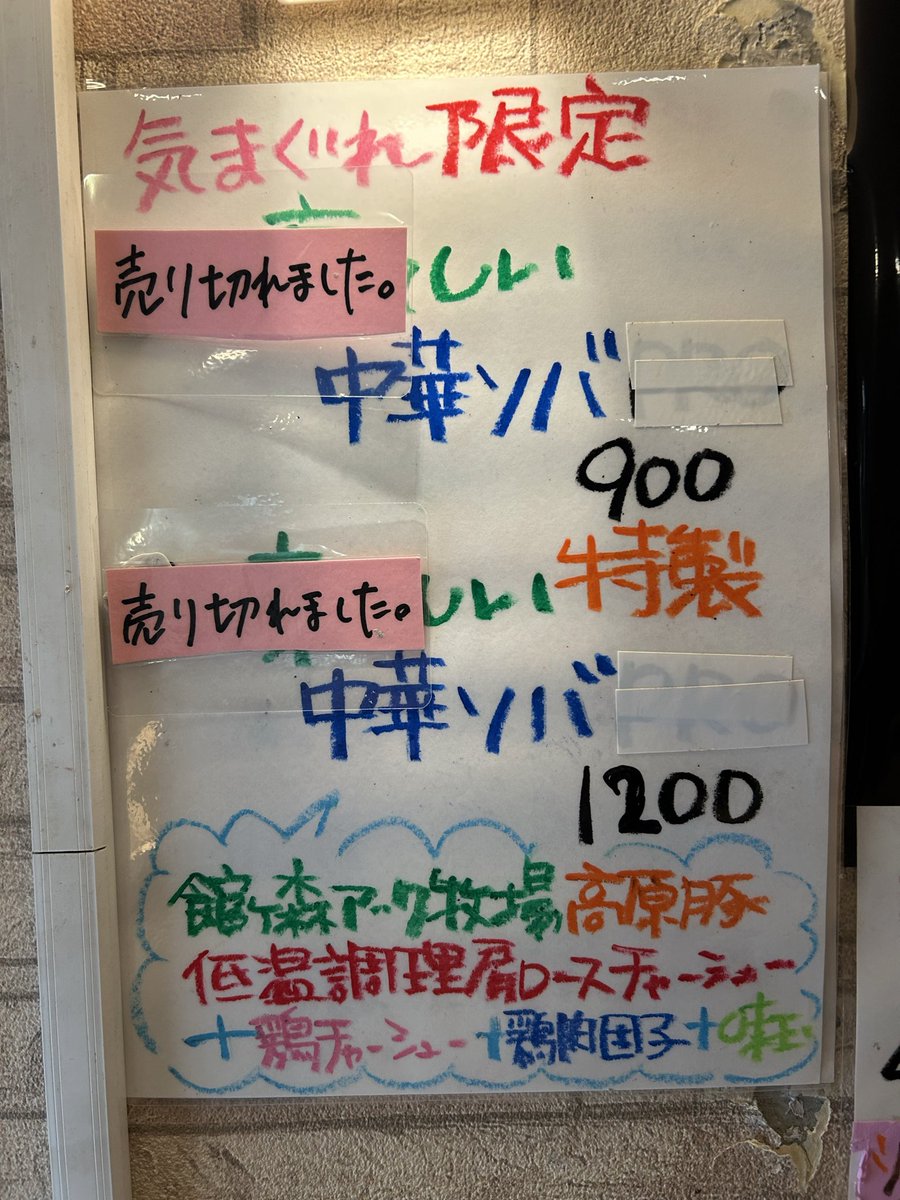 気まぐれ限定
売り切れました。
しい
中華ソバ
900
売り切れました。
しい特製
中華ソバ
1200
館ヶ森アーク牧場高原豚
低温調理肩ロースチャーシュー
+鶏チャーシュー+鶏肉団子+味玉